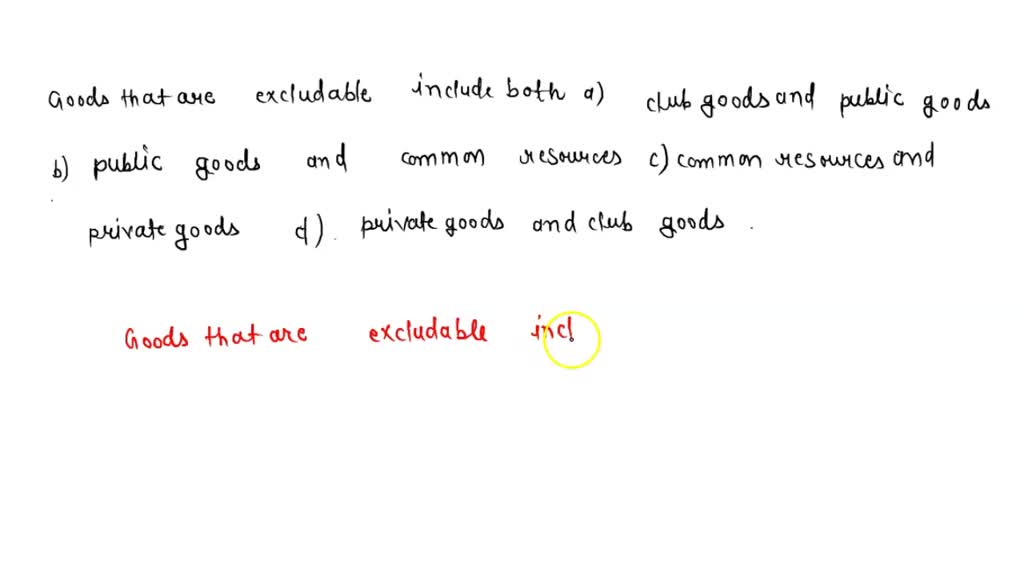 Goods that are excludable include both a) club goods and public goods
b) public goods and common resources c) common resources and
private goods d). private goods and club goods.
Goods that are excludable incl